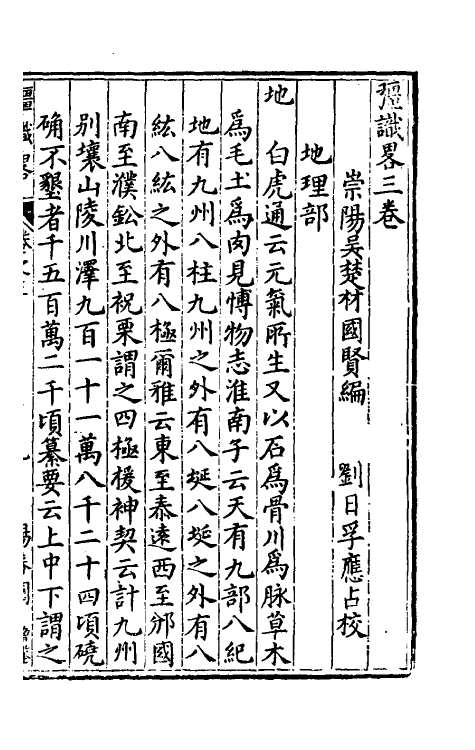 彊識畧三卷
崇陽吴楚材國賢編 劉日孚應占校
地理部
地 白虎通云元氣所生又以石爲骨川爲脉草木
爲毛土爲肉見博物志淮南子云天有九部八紀
地有九州八柱九州之外有八埏八埏之外有八
紘八紘之外有八極爾雅云東至泰逺西至邠國
南至濮鈆北至祝栗謂之四極援神契云計九州
别壤山陵川澤九百一十一萬八千二十四頃磽
确不墾者千五百萬二千頃纂要云上中下謂之